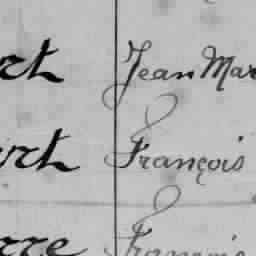 rt Jean Mar
rt François
rre François